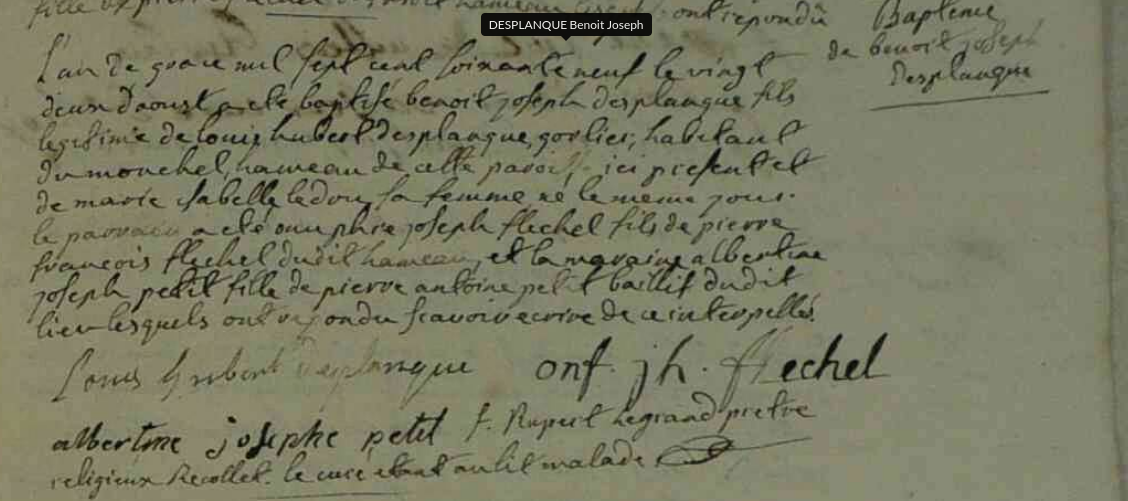 DESPLANQUE Benoit Joseph
ont repondû
Bapteme
de benoit joseph
Desplanque
L'an de grace mil sept cent soixante neuf le vingt
deux d'aoust a eté baptisé benoit joseph desplanque fils
legitime de louis hubert desplanque, gorlier, habitant
du monchel, hameau de cette paroisse ici present et
de marie isabelle ledoux sa femme né le meme jour.
le parrain a eté onuphre joseph flechel fils de pierre
francois flechel dudit hameau, et la maraine albertine
joseph petit fille de pierre antoine petit baillif dudit
lieu lesquels ont repondu scavoir ecrire de ce interpellés.
Louis hubert desplanque onf. jh. flechel
albertine josephe petit f. Rupert Legrand pretre
religieux Recollet. le curé etant au lit malade